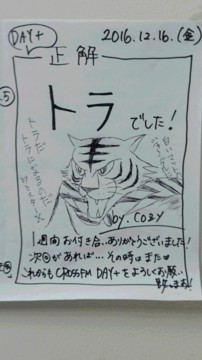 DAY+
2016.12.16.(金)
正解
⑤
トラ
でした!
トラだ
トラになるのだ
by. cozy
1週間お付き合いありがとうございました!
次回があれば… その時はまた♡
これからもCROSSFM DAY+をよろしくお願い
致します!